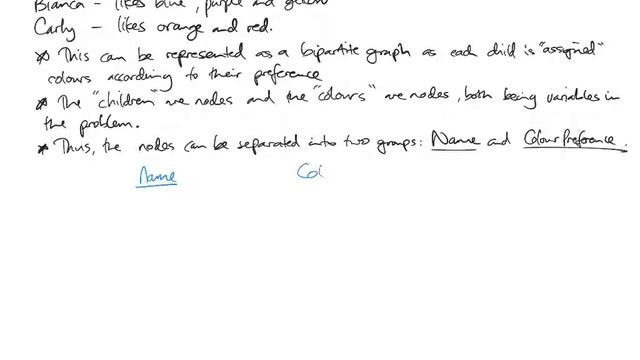 Bianca - likes blue, purple and yellow
Carly - likes orange and red.
* This can be represented as a bipartite graph as each child is "assigned"
colours according to their preference
* The "children" are nodes and the "colours" are nodes, both being variables in
the problem.
* Thus, the nodes can be separated into two groups: Name and Colour Preference.
Name Col